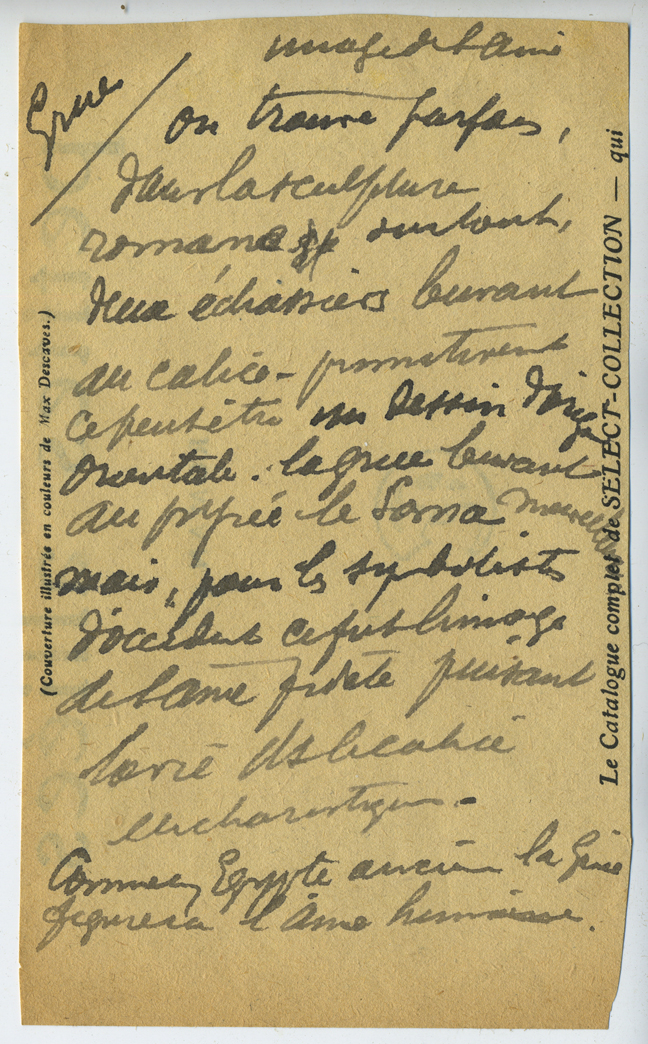 image de l'ame
Grue
on trouve parfois,
dans la sculpture
romane surtout,
deux échassiers buvant
au calice - primitivement
ce peut être un dessin d'origine
orientale. la grue buvant
au le Soma
mais, pour les symbolistes
d'occident ce fut l'image
de l'ame fidèle puisant
la vie ds le calice
eucharistique -
Comme en Egypte ancienne la Grue
figurera l'âme humaine.
(Couverture illustrée en couleurs de Max Descaves.)
Le Catalogue complet de SELECT-COLLECTION — qui